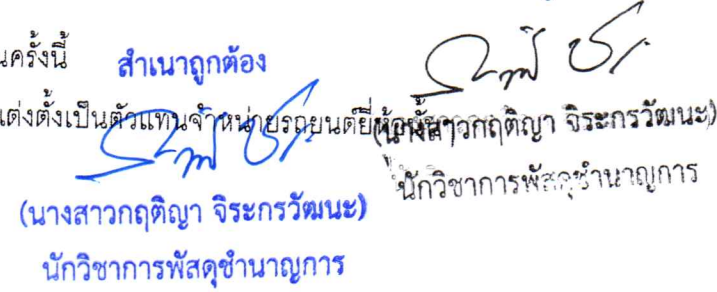 นครั้งนี้
สำเนาถูกต้อง
แต่งตั้งเป็นตัวแทนจำหน่ายรถยนต์ยี่ห้อนั้น
(นางสาวกฤติญา จิระกรวัฒนะ)
นักวิชาการพัสดุชำนาญการ
(นางสาวกฤติญา จิระกรวัฒนะ)
นักวิชาการพัสดุชำนาญการ